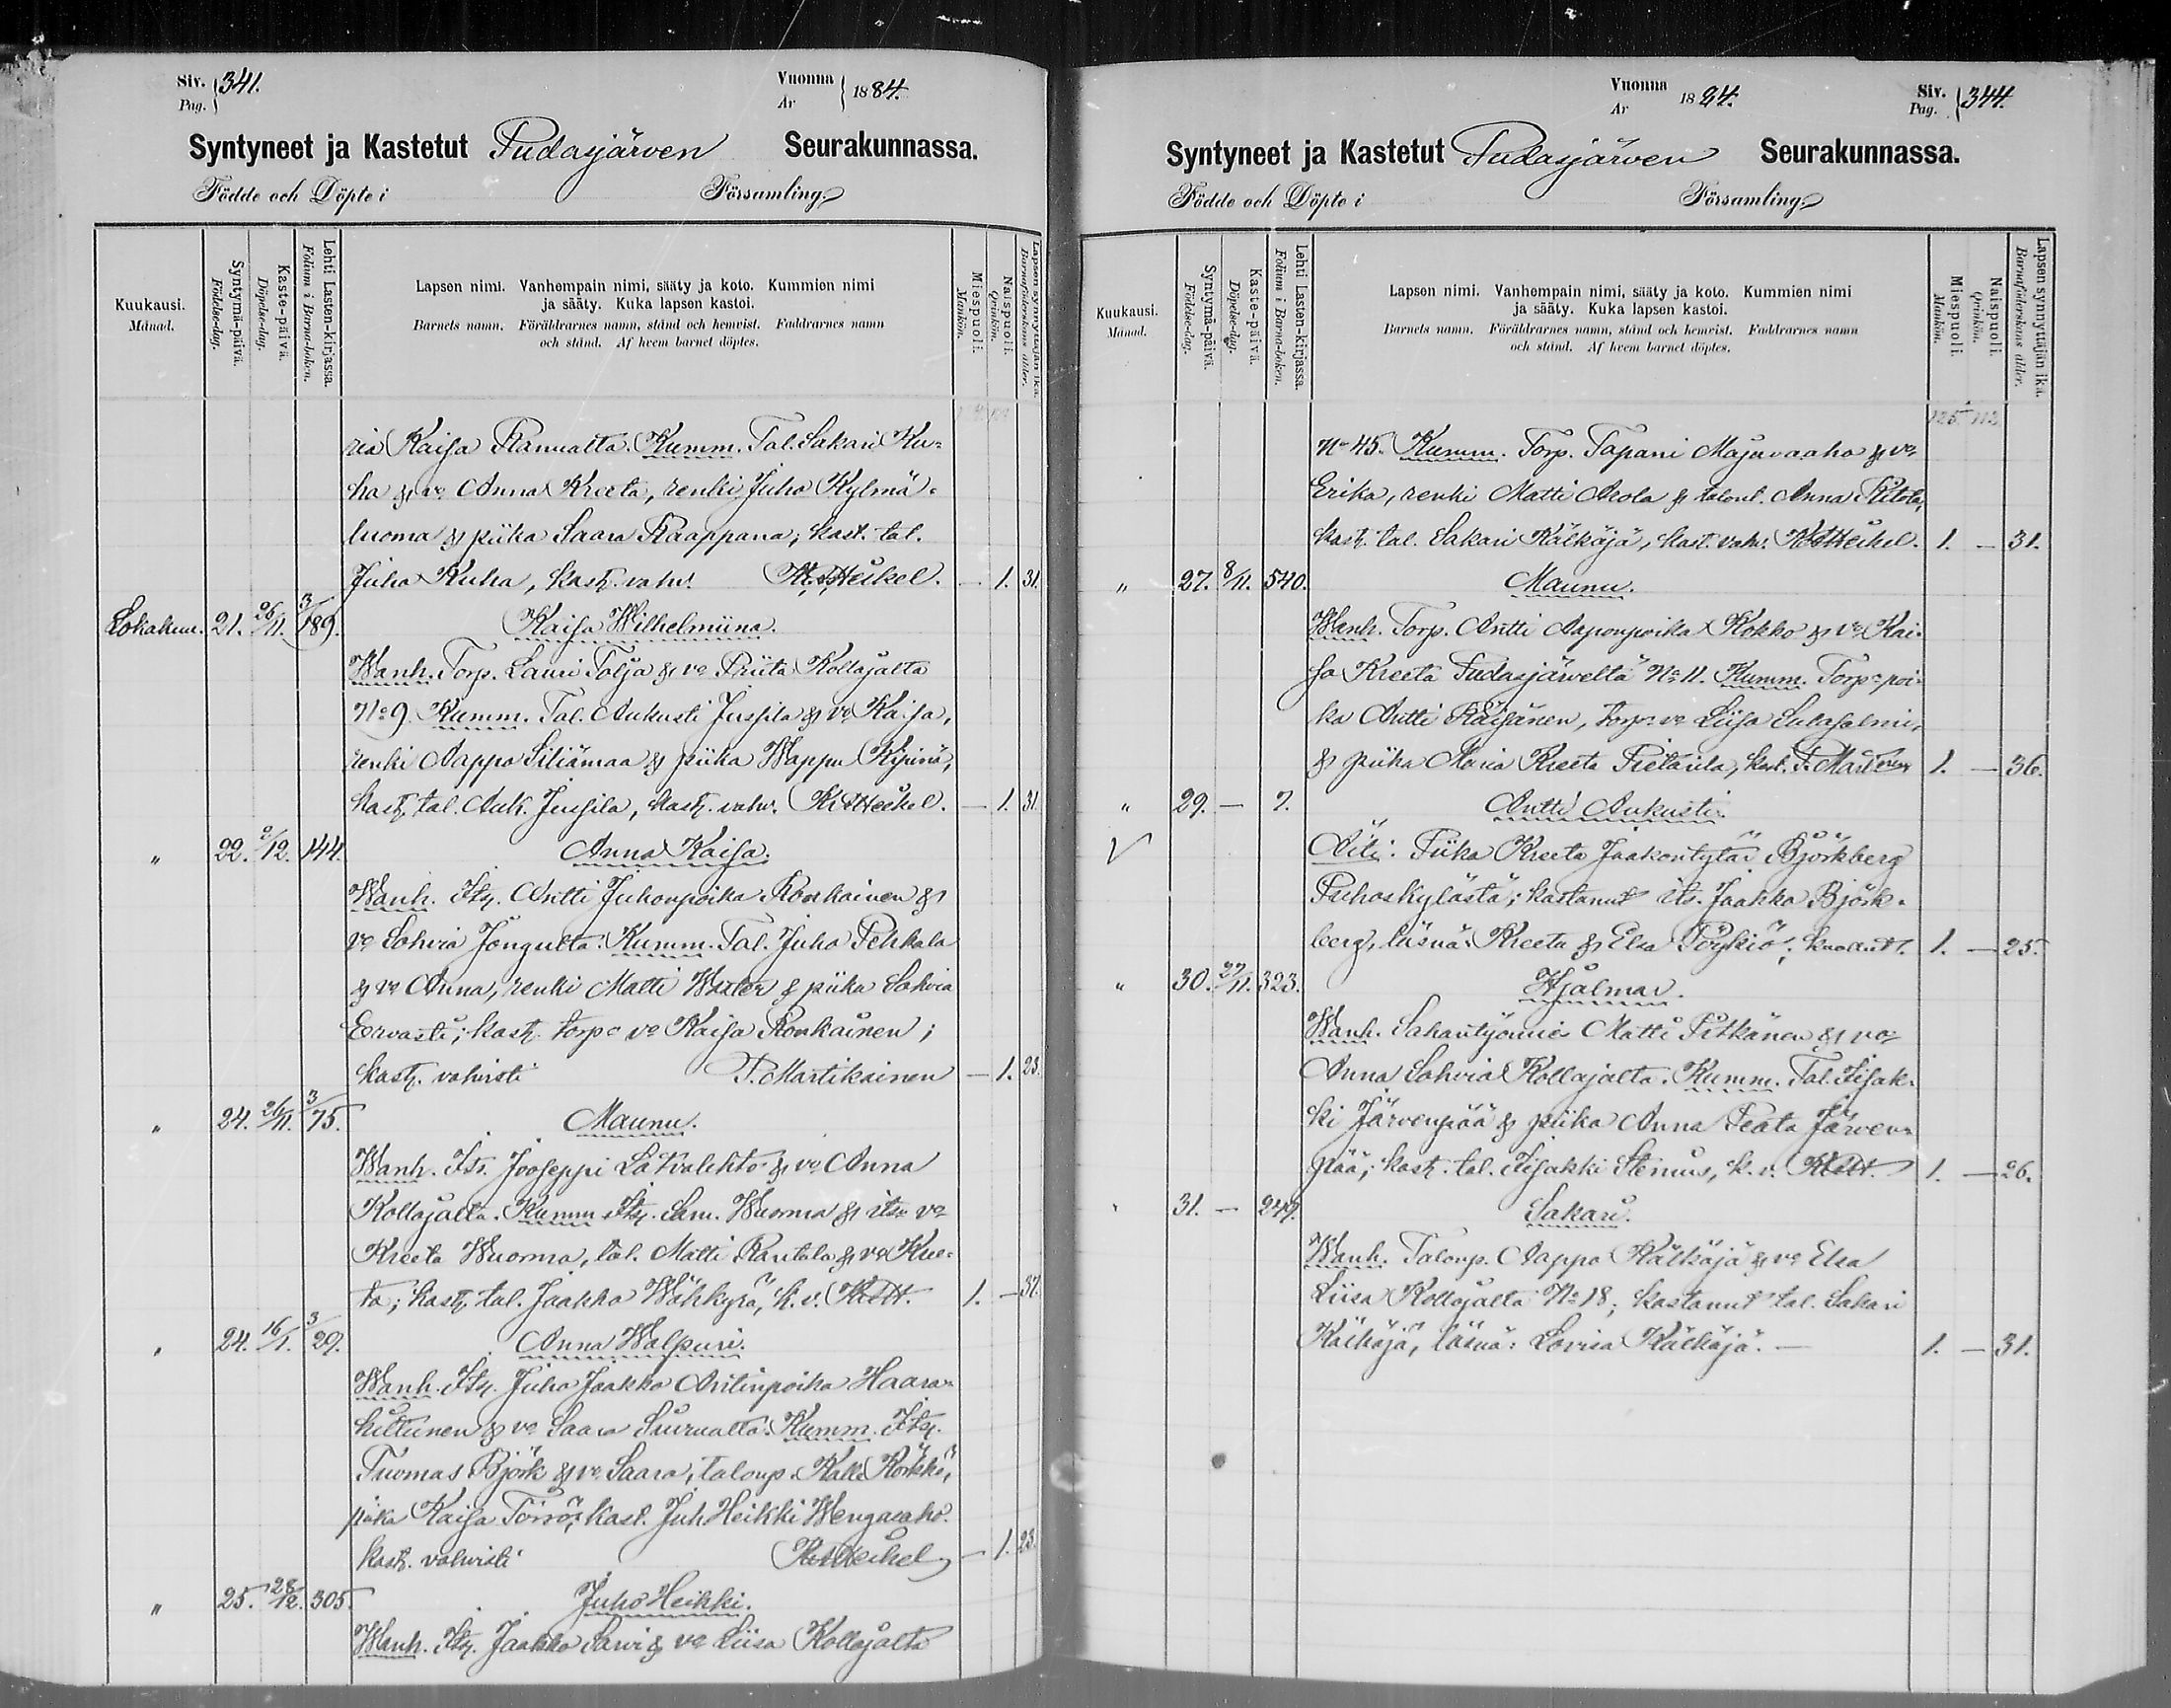 Siv. 341. Vuonna 1884.
Pag. Ar
Syntyneet ja Kastetut Pudasjärven Seurakunnassa.
Födde och Döpte i Församling.
Kuukausi.
Månad.
Syntymä-päivä.
Födelse-dag.
Kaste-päivä.
Döpelse-dag.
Lehti Lasten-kirjassa.
Folium i Barna-boken.
Lapsen nimi. Vanhempain nimi, sääty ja koto. Kummien nimi
ja sääty. Kuka lapsen kastoi.
Barnets namn. Föräldrarnes namn, stånd och hemvist. Faddrarnes namn
och stånd. Af hvem barnet döptes.
Miespuoli.
Mankön.
Naispuoli.
Qvinkön.
Lapsen synnyttäjän ikä.
Barnaföderskans ålder.
ria Kaisa Ranualta. Kumm. Tal. Sakari Ku-
ha & vo Anna Kreeta, renki Juho Kylmä-
luoma & piika Saara Kaappana; kast. tal.
Juho Kuha, kast. vahv. K. A. Heikel. — 1. 31.
Lokakuu. 21. 26/11. 3/189. Kaisa Wilhelmiina.
Wanh. Torp. Lauri Tolja & vo Priita Kollajalta
No 9. Kumm. Tal. Aukusti Jussila & vo Kaisa,
renki Aappo Siliämaa & piika Wappu Kipinä,
kast. tal. Auk. Jussila, kast. vahv. K. A. Heikel. — 1. 31.
„ 22. 2/12. 144. Anna Kaisa.
Wanh. Its. Antti Juhonpoika Ronkainen &
vo Sohvia Jongulta. Kumm. Tal. Juho Pehkala
& vo Anna, renki Matti & piika Sohvia
Ervasti; kast. torp. vo Kaisa Ronkainen;
kast. vahvisti P. Martikainen — 1. 23.
„ 24. 26/11. 3/75. Maunu.
Wanh. Its. Jooseppi Latvalehto & vo Anna
Kollajalta. Kumm. Its. Sam. Wuorma & its. vo
Kreeta Wuorma, tal. Matti Rantala & vo
ta; kast. tal. Jaakko Wähkyrä, k. v. 1. — 37.
„ 24. 16/1. 3/29. Anna Walpuri.
Wanh. Its. Juho Jaakko Antinpoika Haara-
hiltunen & vo Saara Siurualta. Kumm. Its.
Tuomas Björk & vo Saara, talonp. Kalle Körkkö,
piika Kaisa Törrö; kast. Juh. Heikki Wengasaho.
kast. vahvisti K. A. Heikel — 1. 23.
„ 25. 28/12. 305. Juho Heikki.
Wanh. Its. Jaakko Sarvi & vo Liisa Kollajalta
Vuonna 1884. Siv. 344.
Ar Pag.
Syntyneet ja Kastetut Pudasjärven Seurakunnassa.
Födde och Döpte i Församling.
Kuukausi.
Månad.
Syntymä-päivä.
Födelse-dag.
Kaste-päivä.
Döpelse-dag.
Lehti Lasten-kirjassa.
Folium i Barna-boken.
Lapsen nimi. Vanhempain nimi, sääty ja koto. Kummien nimi
ja sääty. Kuka lapsen kastoi.
Barnets namn. Föräldrarnes namn, stånd och hemvist. Faddrarnes namn
och stånd. Af hvem barnet döptes.
Miespuoli.
Mankön.
Naispuoli.
Qvinkön.
Lapsen synnyttäjän ikä.
Barnaföderskans ålder.
125 112
No 45. Kumm. Torp. Tapani Majavaaho & vo
Erika, renki Matti Aeola & talont. Anna Ritola,
kast. tal. Sakari Kälkäjä, kast. vahv. K. A. Heikel. 1. — 31.
„ 27. 8/11. 540. Maunu.
Wanh. Torp. Antti Aaponpoika Kokko & vo Kai-
sa Kreeta Pudasjärveltä No 11. Kumm. Torp. poi-
ka Antti Räisänen, torp. vo Liisa Sulasalmi,
& piika Maria Kreeta Pietarila, kast. P. Martikainen 1. — 36.
„ 29. — 7. Antti Aukusti.
Äiti: Piika Kreeta Jaakontytär Björkberg
Puhoskylästä; kastanut its. Jaakko Björk-
berg, läsnä: Kreeta & Elsa Pöykiö; 1. — 25.
„ 30. 27/11. 323. Hjalmar.
Wanh. Sahantyömies Matti Pitkänen & vo
Anna Sohvia Kollajalta. Kumm. Tal. Iisak-
ki Järvenpää & piika Anna Peata Järven-
pää; kast. tal. Iisakki Stenius, k. v. 1. — 26.
„ 31. — 249. Sakari.
Wanh. Talonp. Aappo Kälkäjä & vo Elsa
Liisa Kollajalta No 18; kastanut tal. Sakari
Kälkäjä, läsnä: Lovisa Kälkäjä. — 1. — 31.